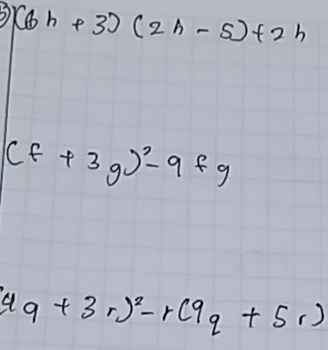 (6h + 3) (2h - 5) + 2h
(f + 3g)² - 9fg
(4q + 3r)² - r(9q + 5r)